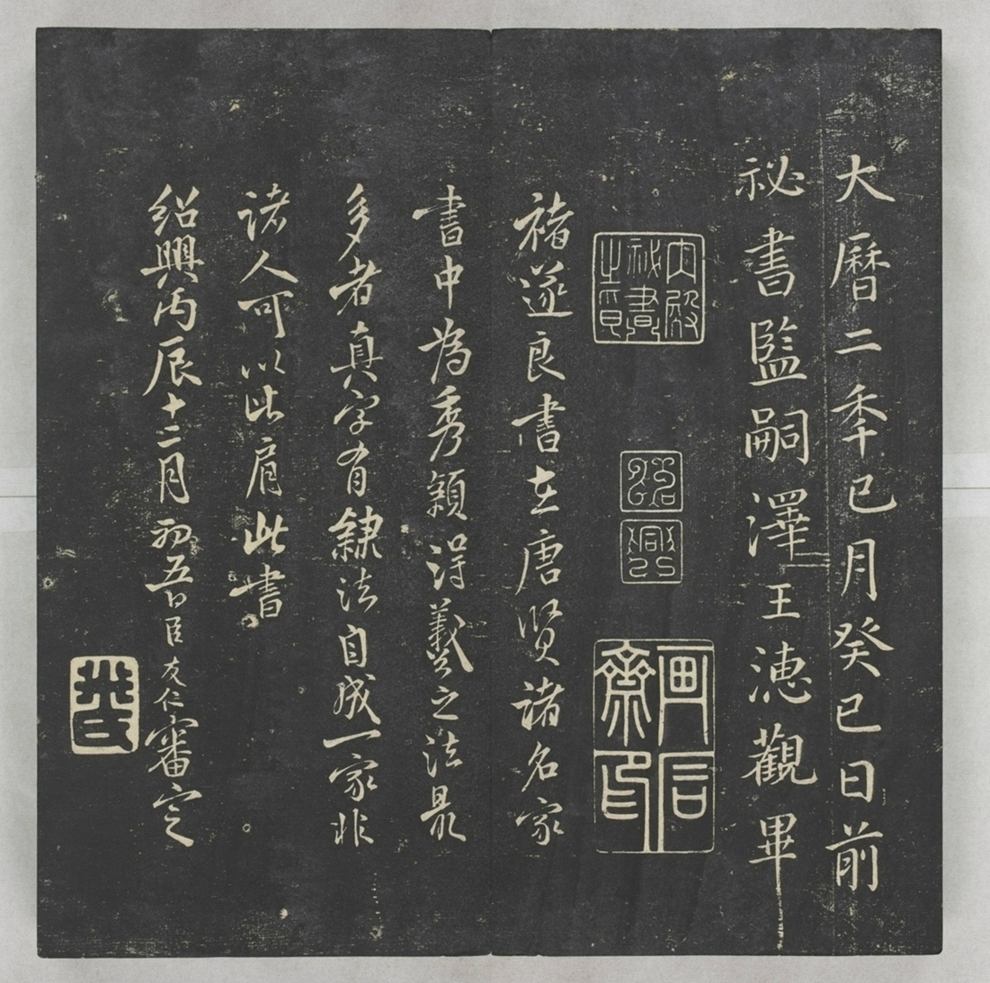 大曆二季巳月癸巳日前
祕書監嗣澤王漶觀畢
內殿祕書之印
紹興
褚遂良書在唐賢諸名家
書中為秀穎得羲之法最
多者真字有隸法自成一家非
諸人可以比肩此書
紹興丙辰十二月初五日臣友仁審定